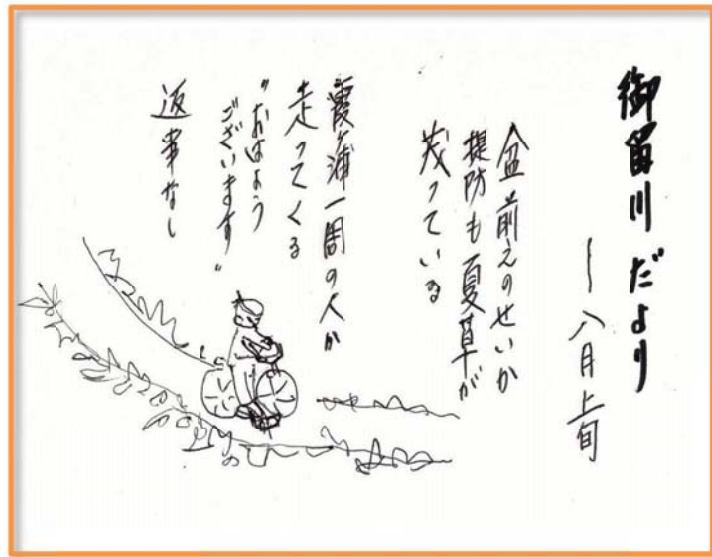 御留川だより
ー八月上旬
盆前えのせいか
堤防も夏草が
茂っている
霞ヶ浦一周の人が
走ってくる
"おはよう
ございます"
返事なし